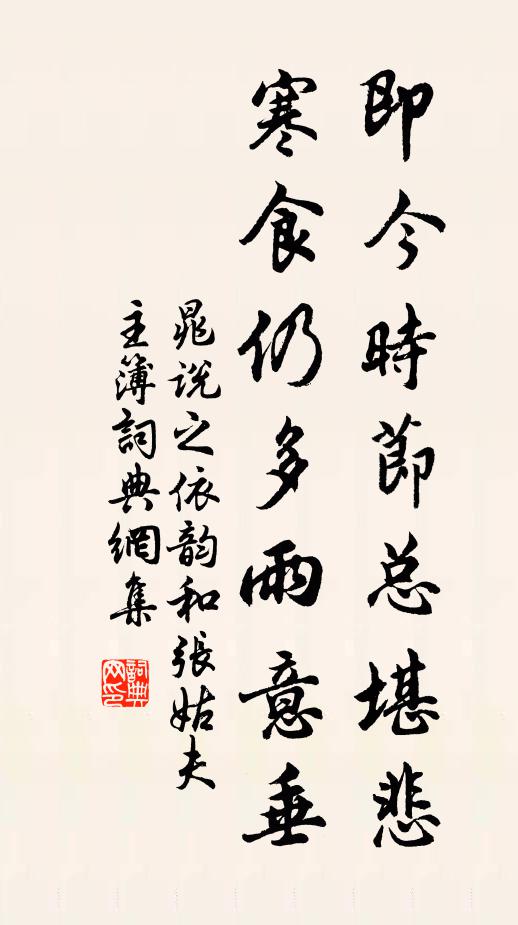 即今時節总堪悲
寒食仍多雨意垂
晁說之依韵和張姑夫
主簿詞典網集
詞典网印